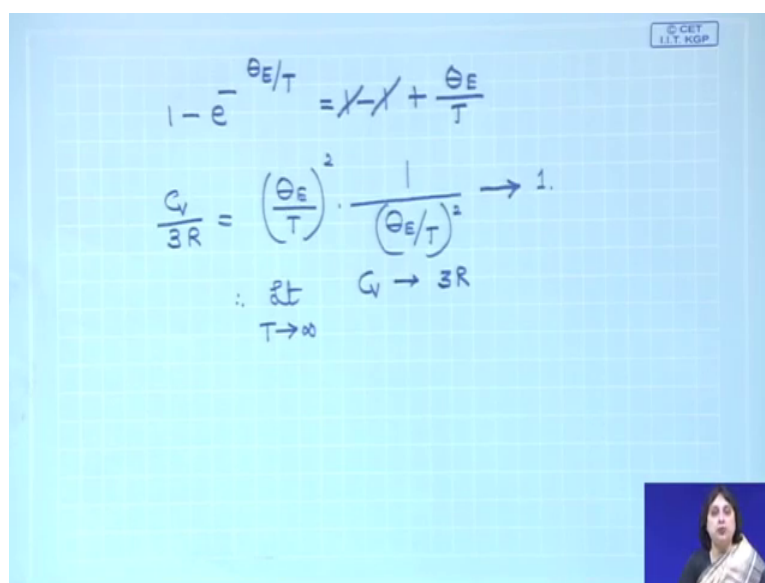 © CET
I.I.T. KGP
1 - e^{-θE/T} = 1 - 1 + θE/T
Cv/3R = (θE/T)^2 . 1/(θE/T)^2 → 1.
∴ Lt T→∞ Cv → 3R